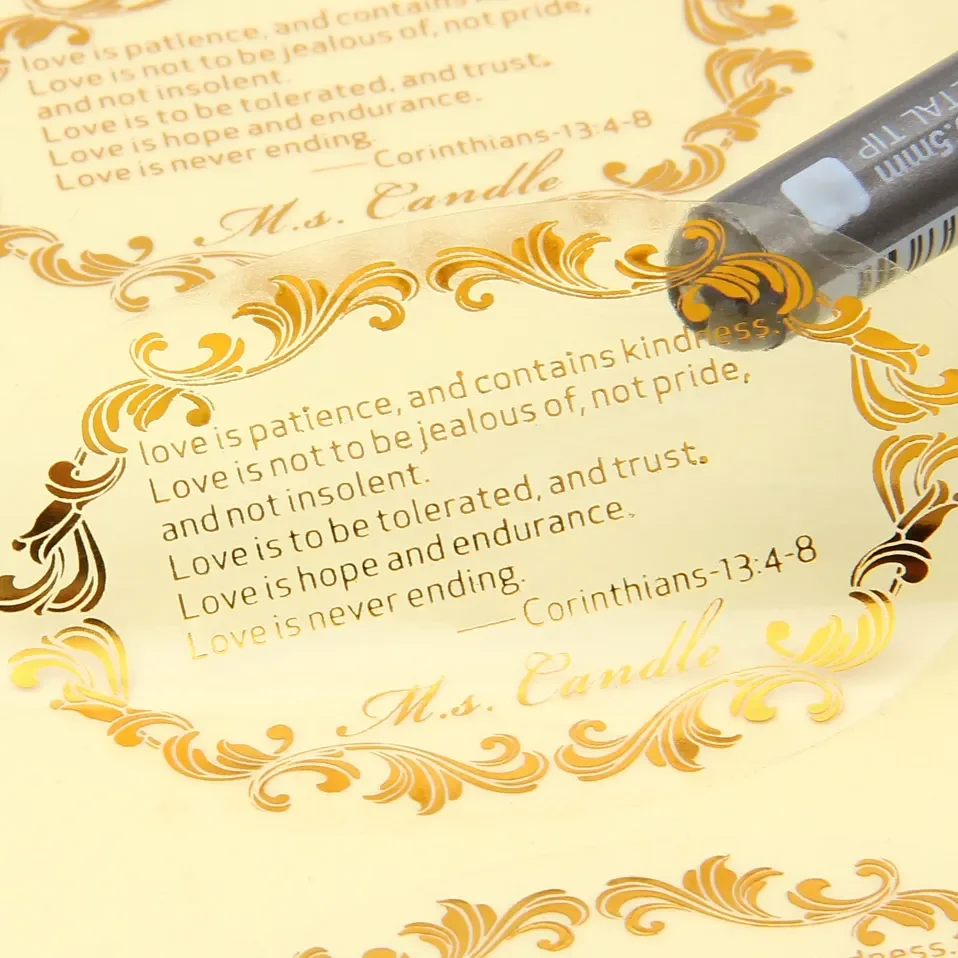 love is patience, and contains
Love is not to be jealous of, not pride,
and not insolent.
Love is to be tolerated, and trust.
Love is hope and endurance.
Love is never ending.
—— Corinthians-13:4-8
M.s. Candle
0.5mm
TAL TIP
love is patience, and contains kindness.
Love is not to be jealous of, not pride,
and not insolent.
Love is to be tolerated, and trust.
Love is hope and endurance.
Love is never ending.
—— Corinthians-13:4-8
M.s. Candle
dness.